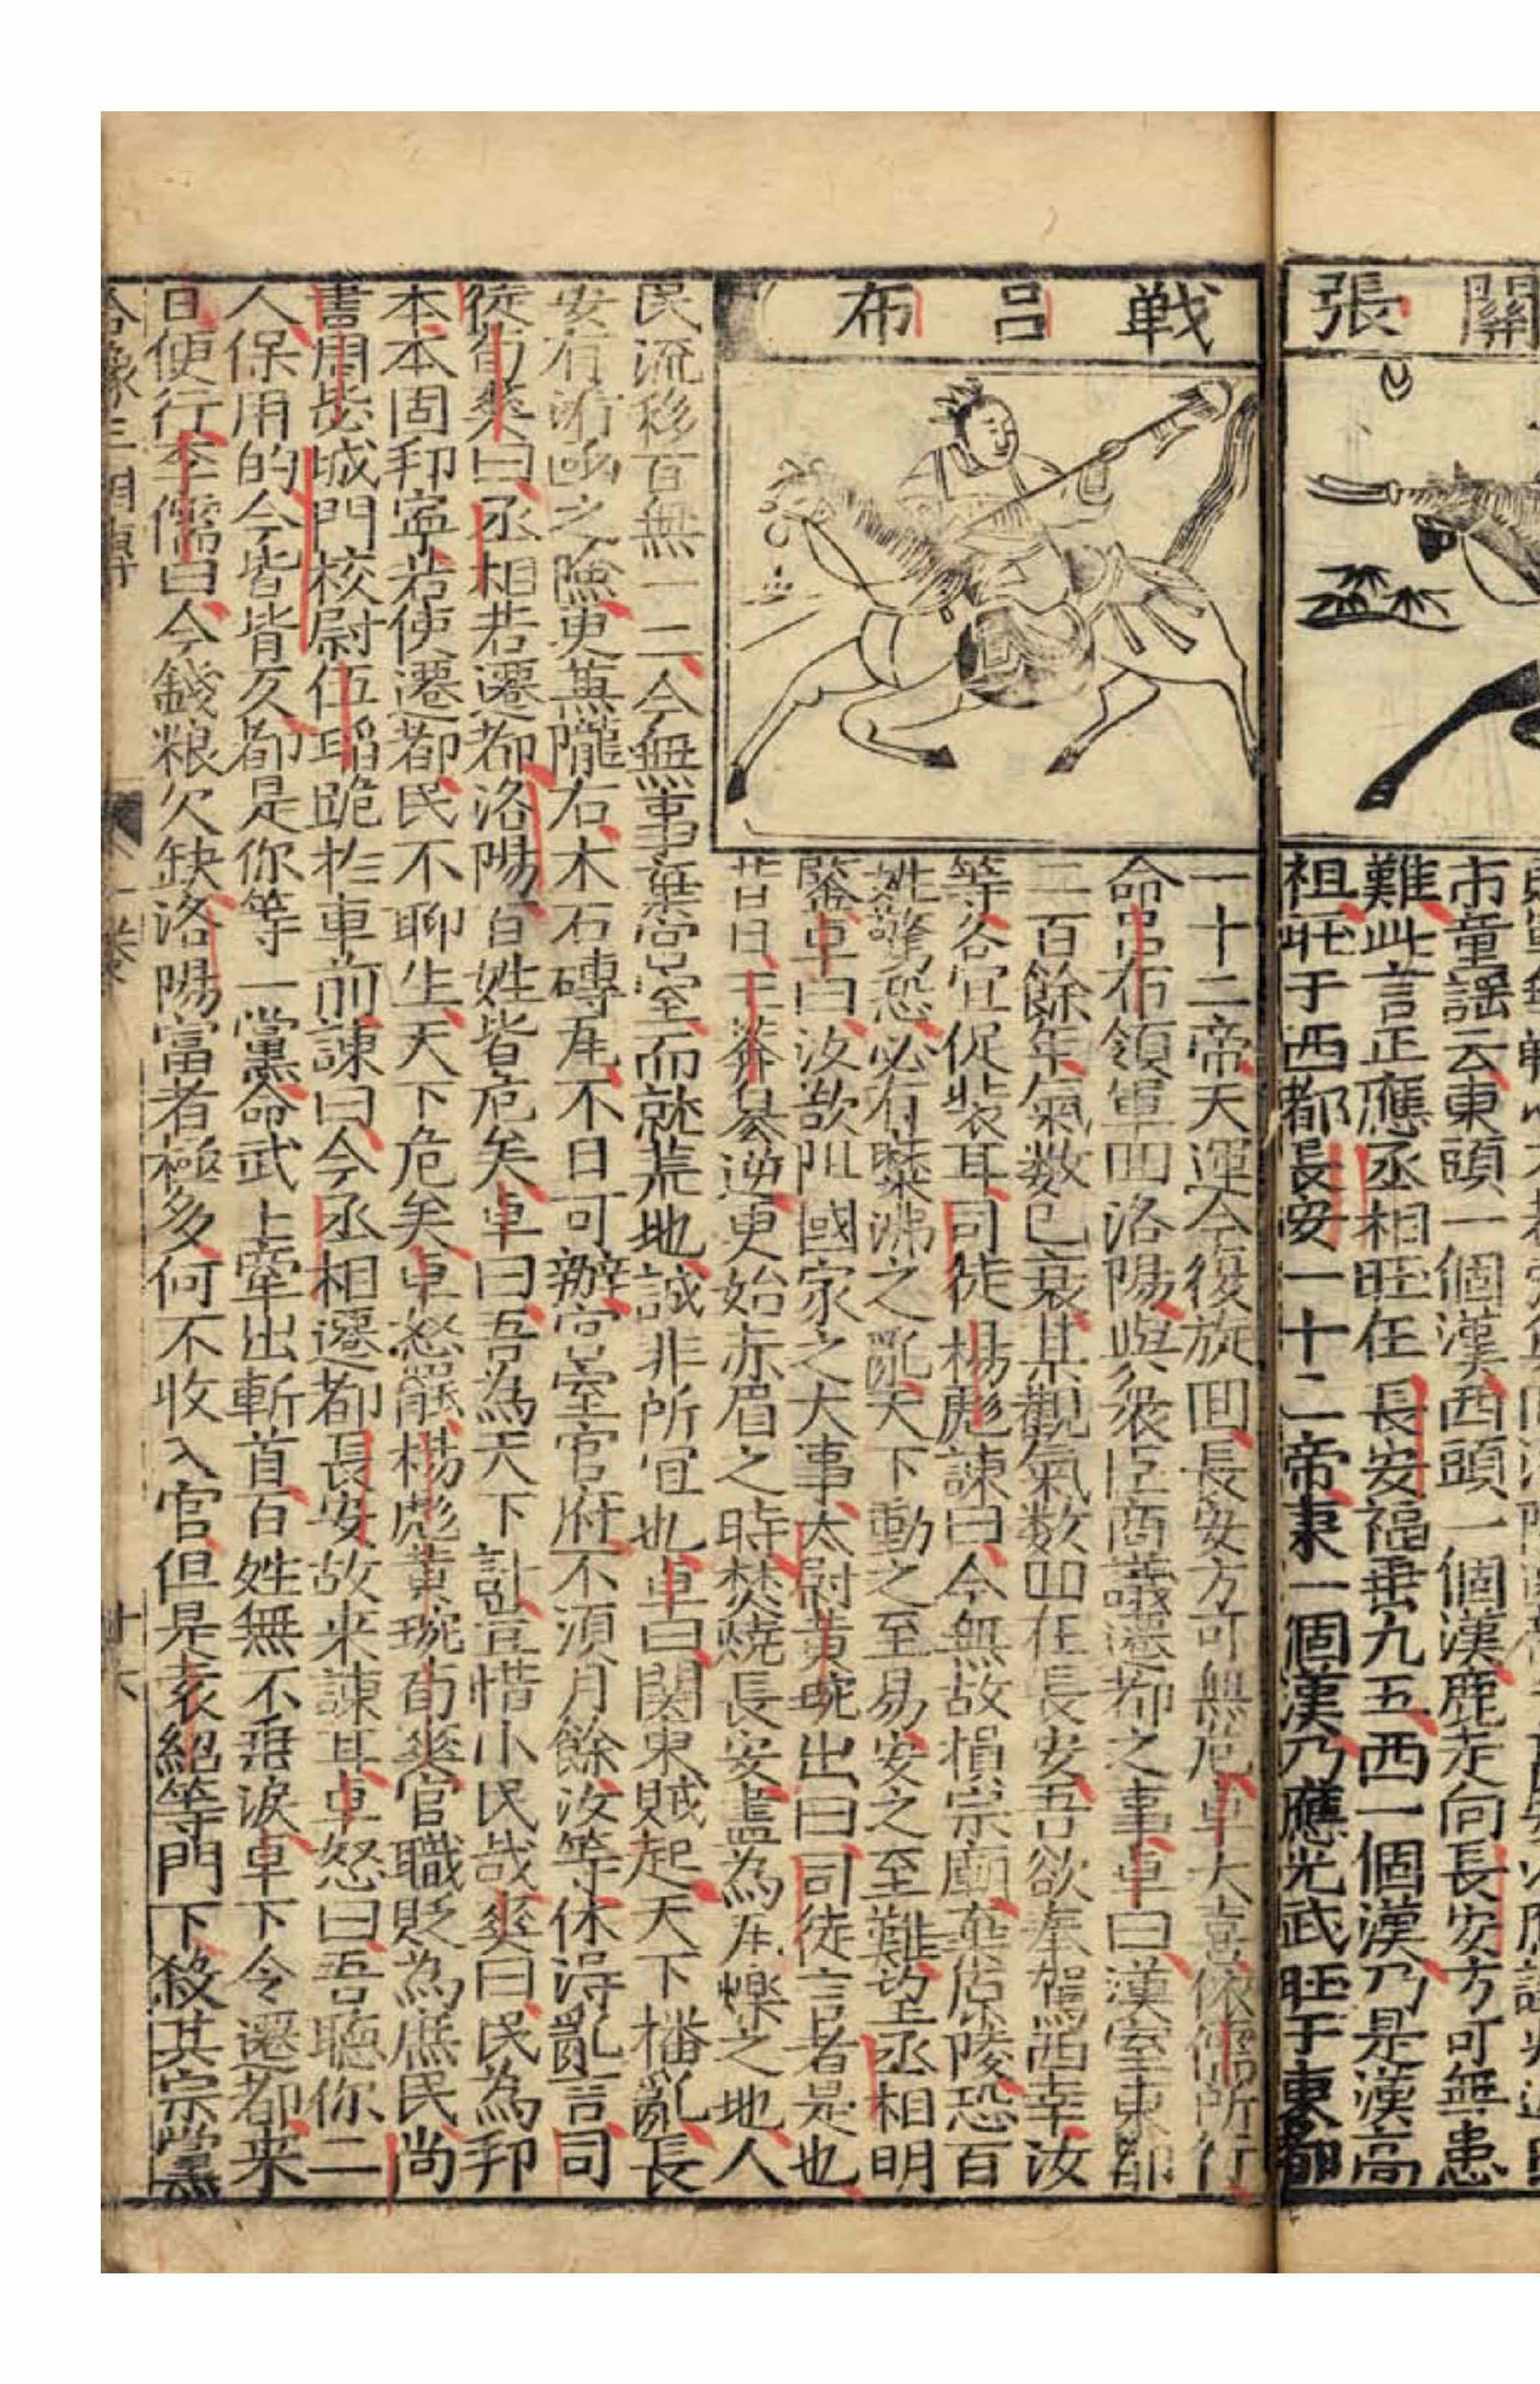 關張
市童謡云東頭一個漢西頭一個漢鹿走向長安方可無患
難此言正應丞相旺在長安福垂九五西一個漢乃是漢高
祖旺于西都長安一十二帝東一個漢乃應光武旺于東都
戦吕布
一十二帝天運令復旋囬長安方可無危卓大喜依儒所行
命吕布領軍囬洛陽與衆臣商議遷都之事卓曰漢室東都
二百餘年氣数已衰某觀氣数囬在長安吾欲奉駕西幸汝
等各宜促装耳司徒楊彪諫曰今無故損宗廟棄原陵恐百
姓驚恐必有糜沸之亂天下動之至易安之至難望丞相明
鑒卓曰汝欲阻國家之大事太尉黄琬出曰司徒言者是也
昔日王莽篡逆更始赤眉之時焚燒長安盡為瓦爍之地人
民流移百無一二今無事棄宫室而就荒地誠非所宜也卓曰関東賊起天下播亂長
安有淆凾之險更兼隴右木石磚瓦不日可辦宫室官府不須月餘汝等休淂亂言司
徒荀爽曰丞相若遷都洛陽百姓皆危矣卓曰吾為天下計豈惜小民哉爽曰民為邦
本本固邦寧若使遷都民不聊生天下危矣卓怒罷楊彪黄琬荀爽官職貶為庶民尚
書周毖城門校尉伍瓊跪扵車前諫曰今丞相遷都長安故来諫耳卓怒曰吾聴你二
人保用的今皆背反都是你等一黨命武士牽出斬首百姓無不垂淚卓下令遷都来
日便行李儒曰今錢粮欠缺洛陽富者極多何不收入官但是袁紹等門下殺其宗黨